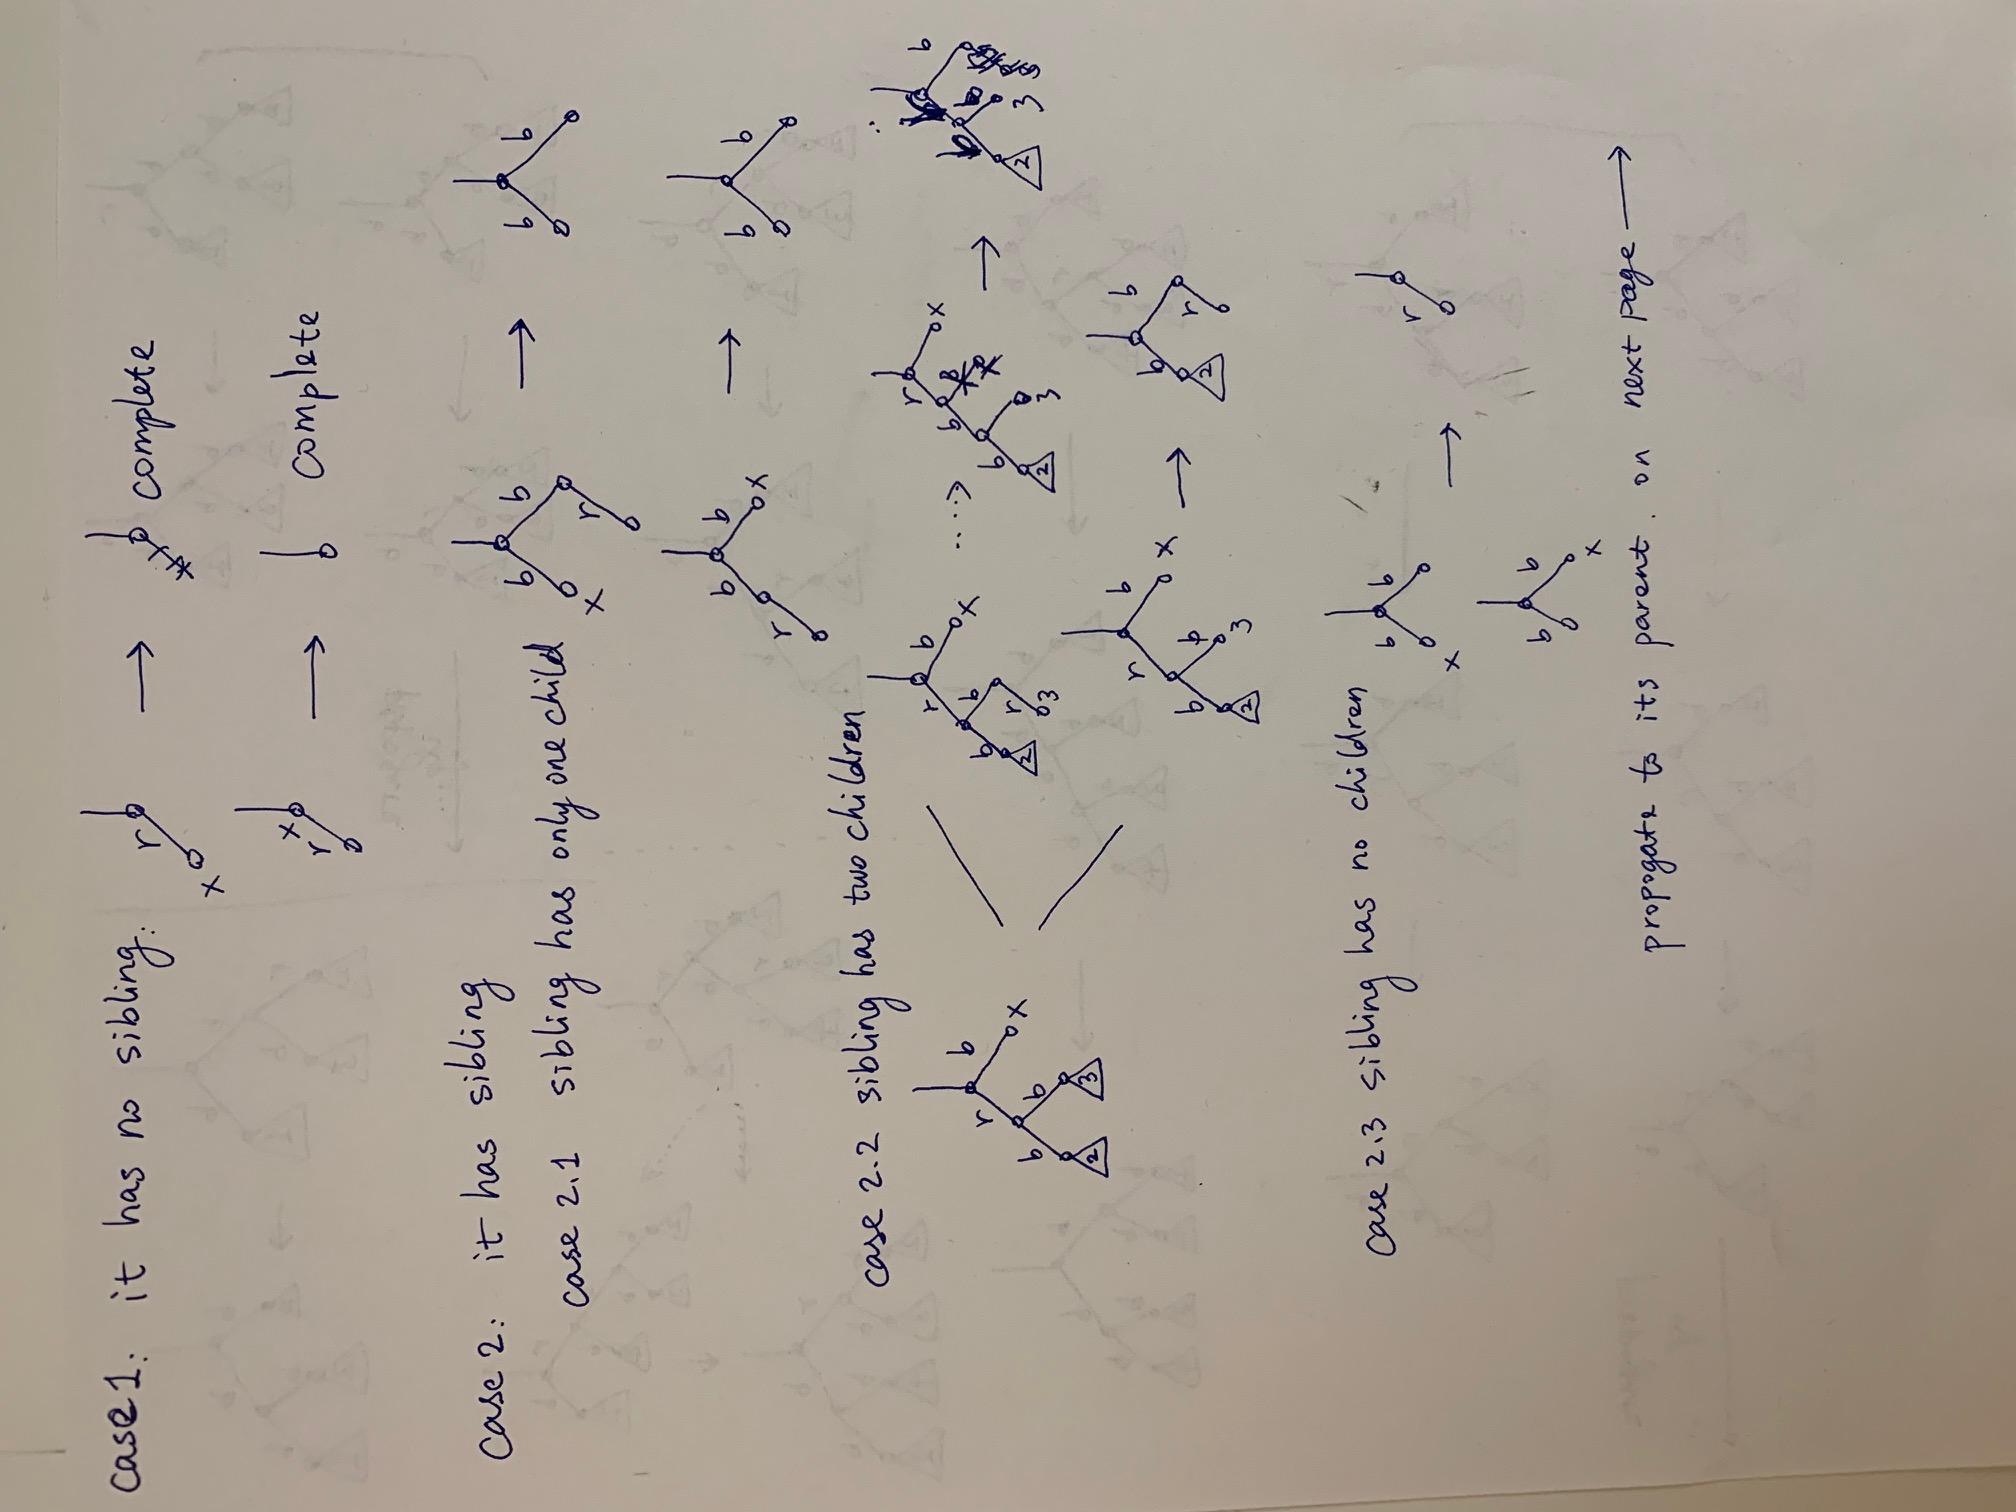 case 1: it has no sibling:
r
x
→
complete
x
r
→
complete
case 2: it has sibling
case 2.1 sibling has only one child
b b
x
r
→
b b
b b
r
x
→
b b
case 2.2 sibling has two children
r b
b b
x
2 3
r b
b b
x
2
r
3
r
b
x
b
2
3
→
b
b
2 3
r b
b b
x
2
3
→
b b
2
r
case 2.3 sibling has no children
b b
x
→
r
b b
x
propogate to its parent. on next page →